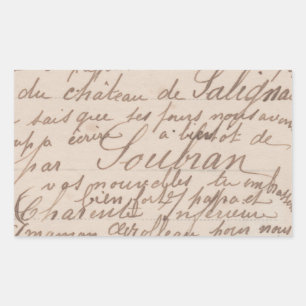 du château de Salignac
sais que ses jours nous avon
écrire à bientot de
par Soubran
vos nouvelles tu embrasse
bien fort papa et
Charente inférieure
maman pour nous